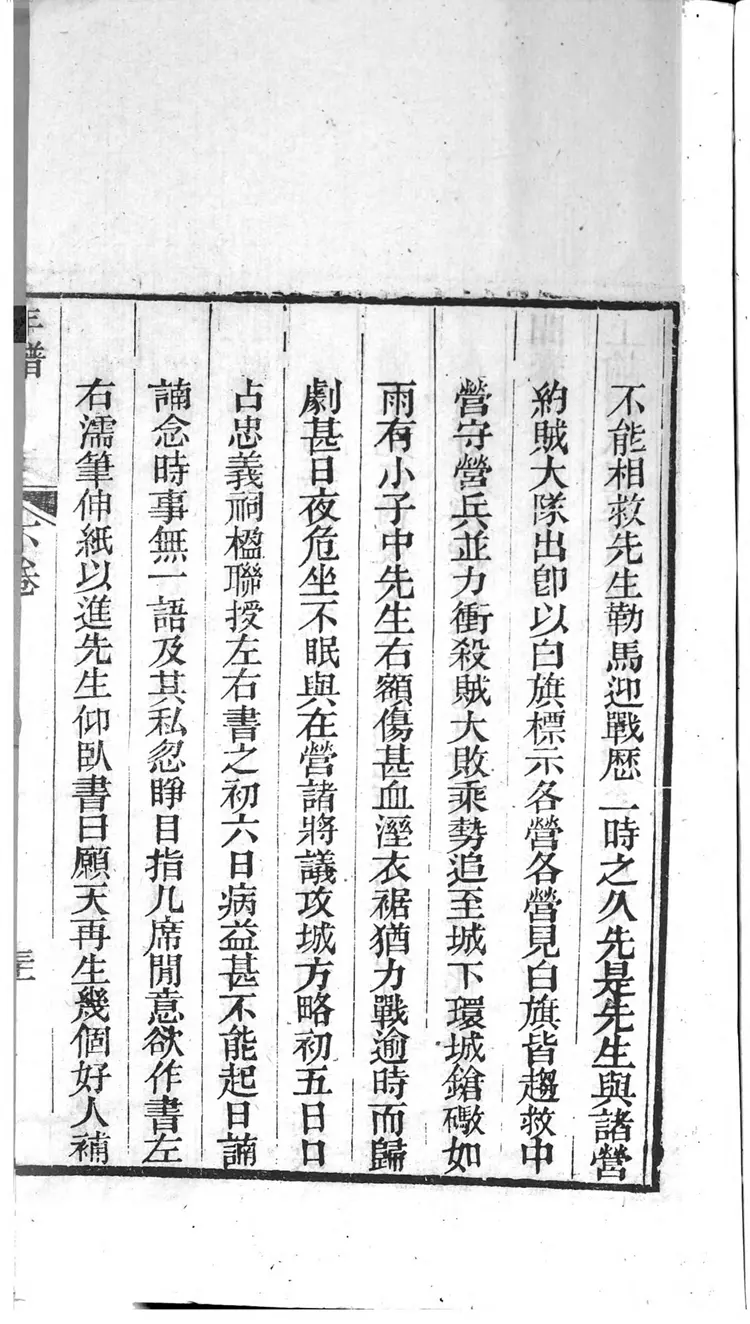 不能相救先生勒馬迎戰歷一時之久先是先生與諸營
約賊大隊出卽以白旗標示各營各營見白旗皆趨救中
營守營兵並力衝殺賊大敗乘勢追至城下環城鎗礮如
雨有小子中先生右額傷甚血溼衣裾猶力戰逾時而歸
劇甚日夜危坐不眠與在營諸將議攻城方略初五日口
占忠義祠楹聯授左右書之初六日病益甚不能起日諵
諵念時事無一語及其私忽睜目指几席閒意欲作書左
右濡筆伸紙以進先生仰臥書曰願天再生幾個好人補
年譜
卷